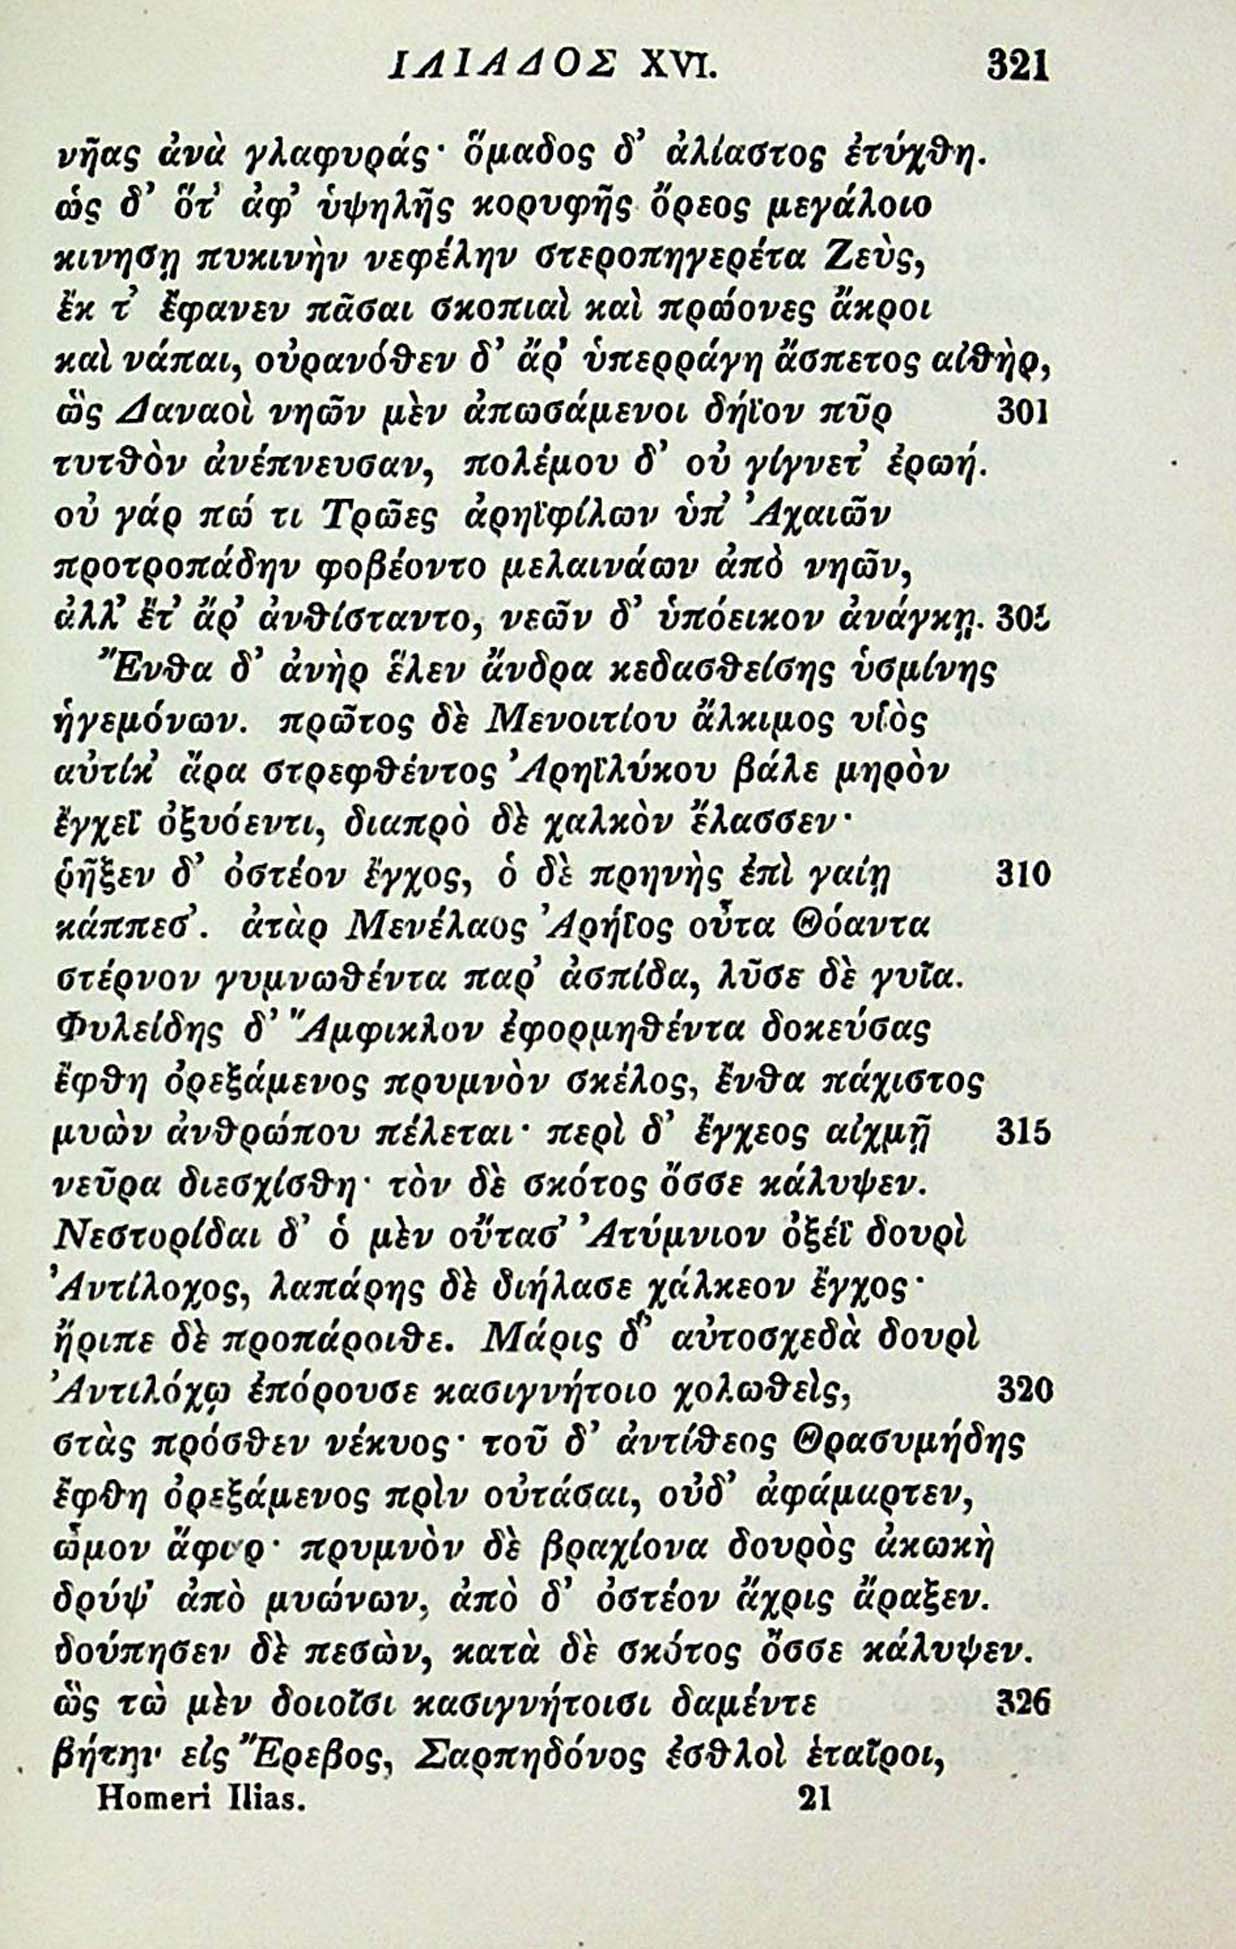 ΙΛΙΑΔΟΣ XVI. 321
νῆας ἀνὰ γλαφυράς· ὅμαδος δ’ ἀλίαστος ἐτύχθη.
ὡς δ’ ὅτ’ ἀφ’ ὑψηλῆς κορυφῆς ὄρεος μεγάλοιο
κινησῃ πυκινὴν νεφέλην στεροπηγερέτα Ζεὺς,
ἔκ τ’ ἔφανεν πᾶσαι σκοπιαὶ καὶ πρώονες ἄκροι
καὶ νάπαι, οὐρανόθεν δ’ ἄρ’ ὑπερράγη ἄσπετος αἰθὴρ,
ὣς Δαναοὶ νηῶν μὲν ἀπωσάμενοι δήϊον πῦρ 301
τυτθὸν ἀνέπνευσαν, πολέμου δ’ οὐ γίγνετ’ ἐρωή.
οὐ γάρ πώ τι Τρῶες ἀρηϊφίλων ὑπ’ Ἀχαιῶν
προτροπάδην φοβέοντο μελαινάων ἀπὸ νηῶν,
ἀλλ’ ἔτ’ ἄρ’ ἀνθίσταντο, νεῶν δ’ ὑπόεικον ἀνάγκῃ. 305
Ἔνθα δ’ ἀνὴρ ἕλεν ἄνδρα κεδασθείσης ὑσμίνης
ἡγεμόνων. πρῶτος δὲ Μενοιτίου ἄλκιμος υἱὸς
αὐτίκ’ ἄρα στρεφθέντος Ἀρηϊλύκου βάλε μηρὸν
ἔγχεϊ ὀξυόεντι, διαπρὸ δὲ χαλκὸν ἔλασσεν·
ῥῆξεν δ’ ὀστέον ἔγχος, ὁ δὲ πρηνὴς ἐπὶ γαίῃ 310
κάππεσ’. ἀτὰρ Μενέλαος Ἀρήϊος οὖτα Θόαντα
στέρνον γυμνωθέντα παρ’ ἀσπίδα, λῦσε δὲ γυῖα.
Φυλείδης δ’ Ἄμφικλον ἐφορμηθέντα δοκεύσας
ἔφθη ὀρεξάμενος πρυμνὸν σκέλος, ἔνθα πάχιστος
μυὼν ἀνθρώπου πέλεται· περὶ δ’ ἔγχεος αἰχμῇ 315
νεῦρα διεσχίσθη· τὸν δὲ σκότος ὄσσε κάλυψεν.
Νεστορίδαι δ’ ὁ μὲν οὔτασ’ Ἀτύμνιον ὀξέϊ δουρὶ
Ἀντίλοχος, λαπάρης δὲ διήλασε χάλκεον ἔγχος·
ἤριπε δὲ προπάροιθε. Μάρις δ’ αὐτοσχεδὰ δουρὶ
Ἀντιλόχῳ ἐπόρουσε κασιγνήτοιο χολωθεὶς, 320
στὰς πρόσθεν νέκυος· τοῦ δ’ ἀντίθεος Θρασυμήδης
ἔφθη ὀρεξάμενος πρὶν οὐτάσαι, οὐδ’ ἀφάμαρτεν,
ὦμον ἄφαρ· πρυμνὸν δὲ βραχίονα δουρὸς ἀκωκὴ
δρύψ’ ἀπὸ μυώνων, ἀπὸ δ’ ὀστέον ἄχρις ἄραξεν.
δούπησεν δὲ πεσὼν, κατὰ δὲ σκότος ὄσσε κάλυψεν.
ὣς τὼ μὲν δοιοῖσι κασιγνήτοισι δαμέντε 326
βήτην εἰς Ἔρεβος, Σαρπηδόνος ἐσθλοὶ ἑταῖροι,
Homeri Ilias. 21